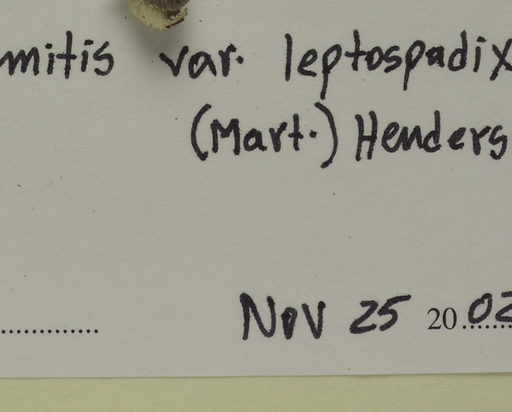 mitis var. leptospadix
(Mart.) Henders
Nov 25 2002